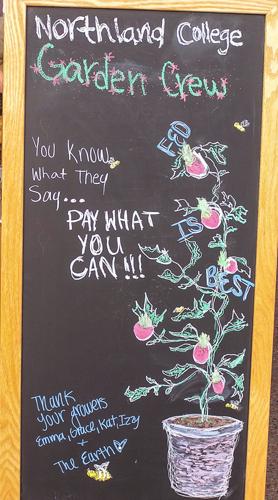 Northland College
Garden Crew
You Know,
What They
Say...
PAY WHAT
YOU
CAN!!!
FED
IS
BEST
Thank
Your growers
Emma, Grace, Kat, Izzy
+
The Earth